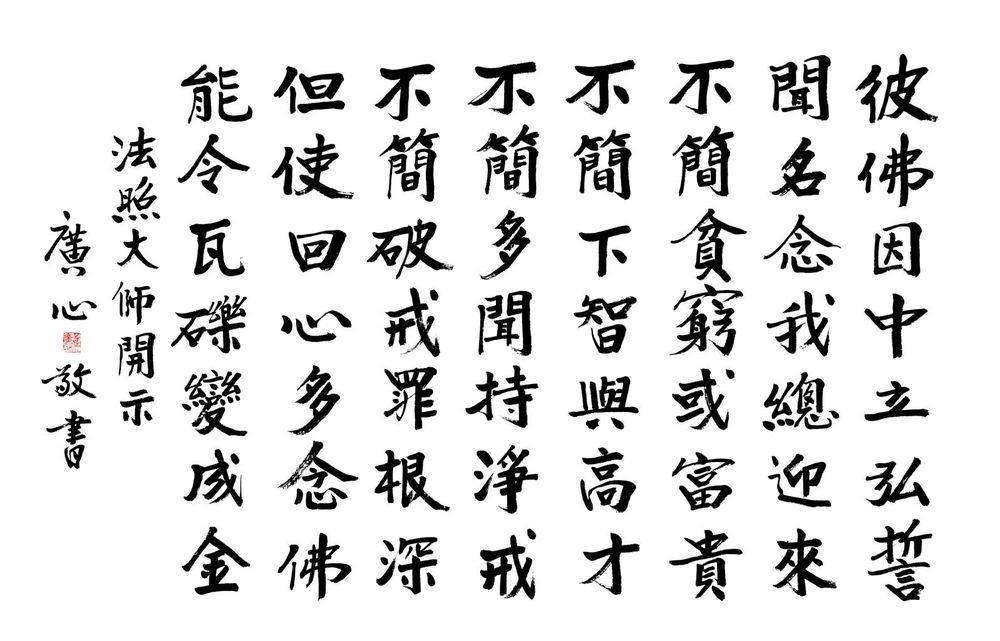 彼佛因中立弘誓
聞名念我總迎來
不簡貧窮或富貴
不簡下智與高才
不簡多聞持淨戒
不簡破戒罪根深
但使回心多念佛
能令瓦礫變成金
法照大師開示
廣心敬書